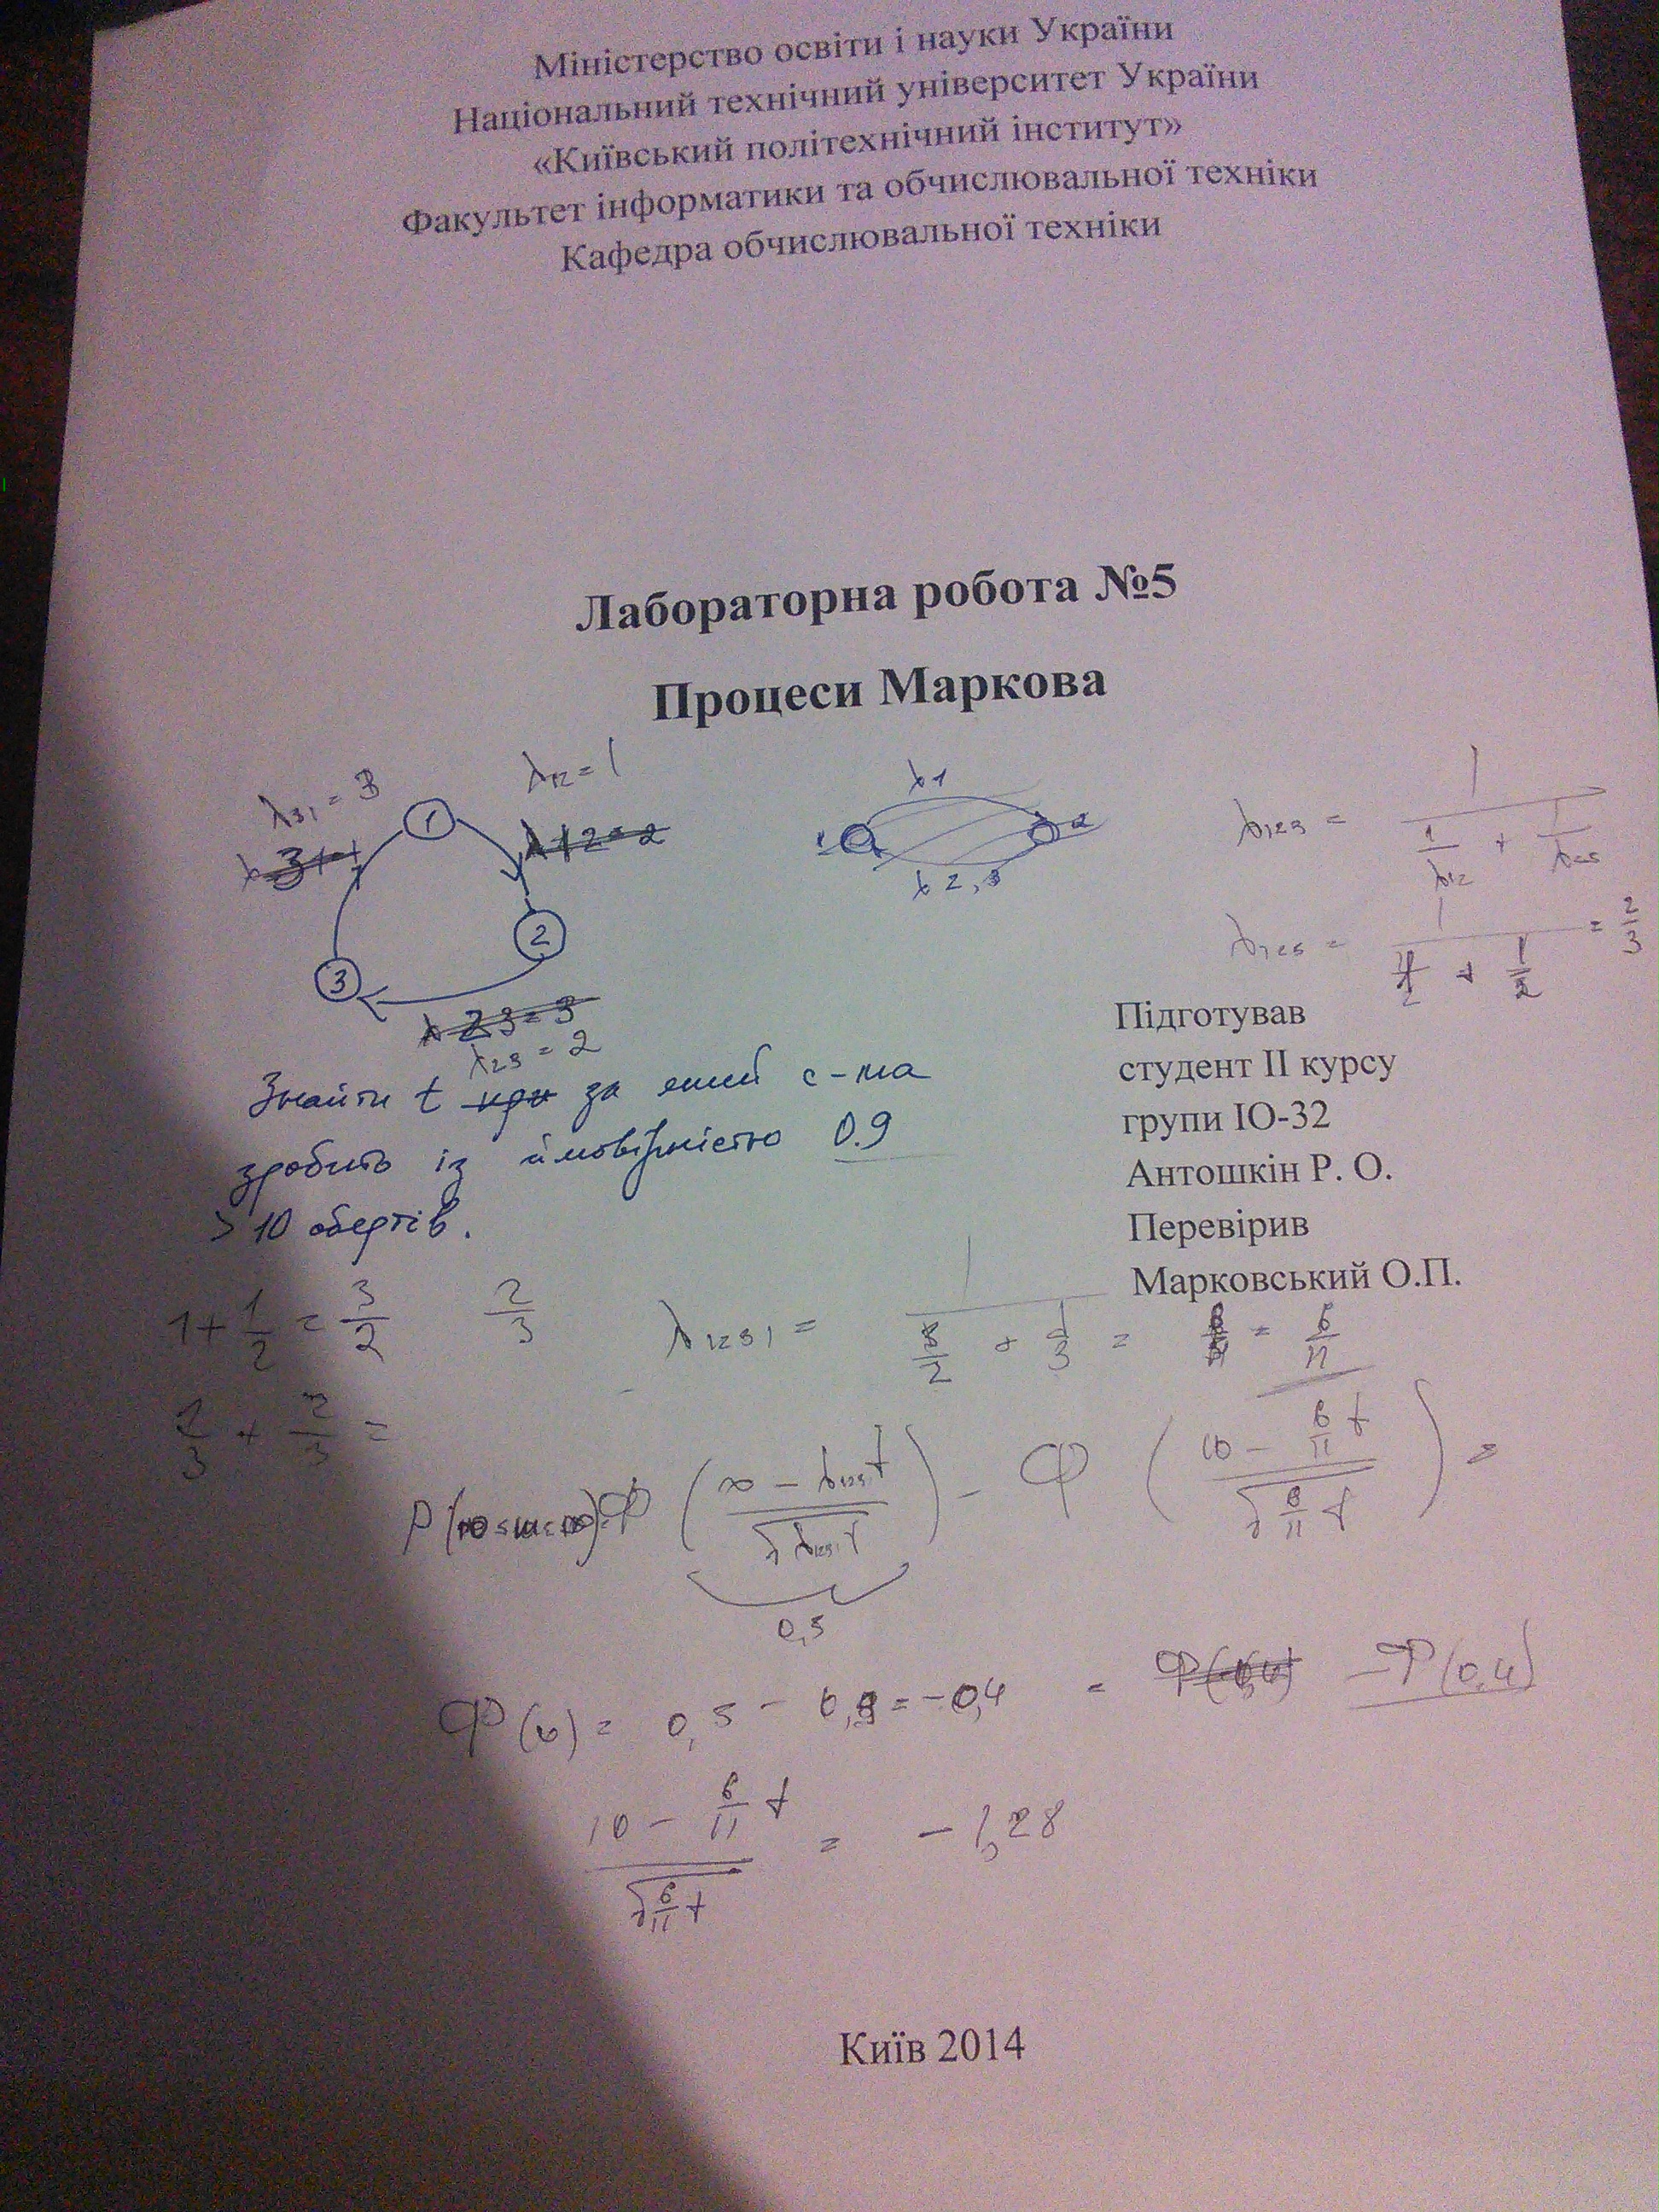 Міністерство освіти і науки України
Національний технічний університет України
«Київський політехнічний інститут»
Факультет інформатики та обчислювальної техніки
Кафедра обчислювальної техніки
Лабораторна робота №5
Процеси Маркова
λ31 = 3
λ12 = 1
1
2
3
λ23 = 2
λ1
1
2
λ 2,3
λ123 = 1 / (1/λ12 + 1/λ23)
= 2/3
Знайти t за який с-ма
зробить із ймовірністю 0.9
> 10 обертів.
Підготував
студент II курсу
групи ІО-32
Антошкін Р. О.
Перевірив
Марковський О.П.
1 + 1/2 = 3/2 2/3
λ1231 = 1 / (3/2 + 1/3) = 6/11
Φ ((∞ - λ1231t) / √(λ1231t)) - Φ ((10 - 6/11 t) / √(6/11 t)) =
0,5
Φ( ) = 0,5 - 0,9 = -0,4 = -Φ(0,4)
(10 - 6/11 t) / √(6/11 t) = -1,28
Київ 2014